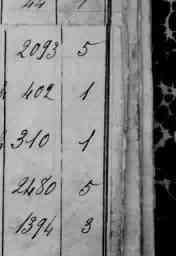 2093 5
402 1
310 1
2480 5
1394 3